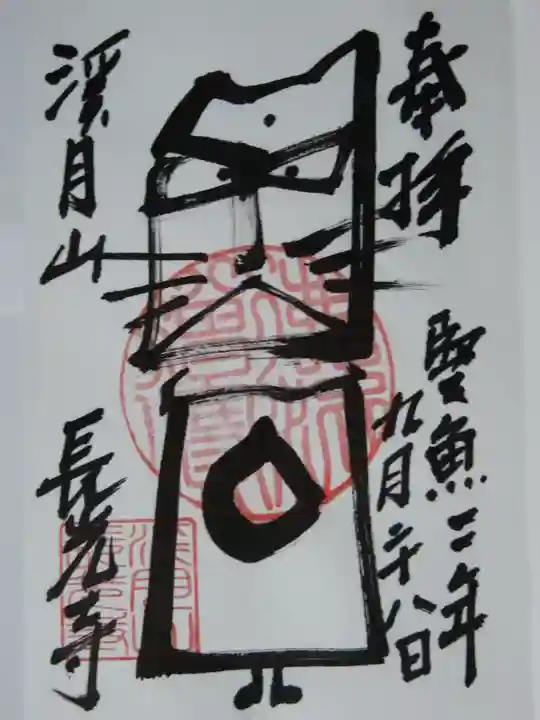 奉拝
聖魚二年
九月二十八日
渓月山
長光寺